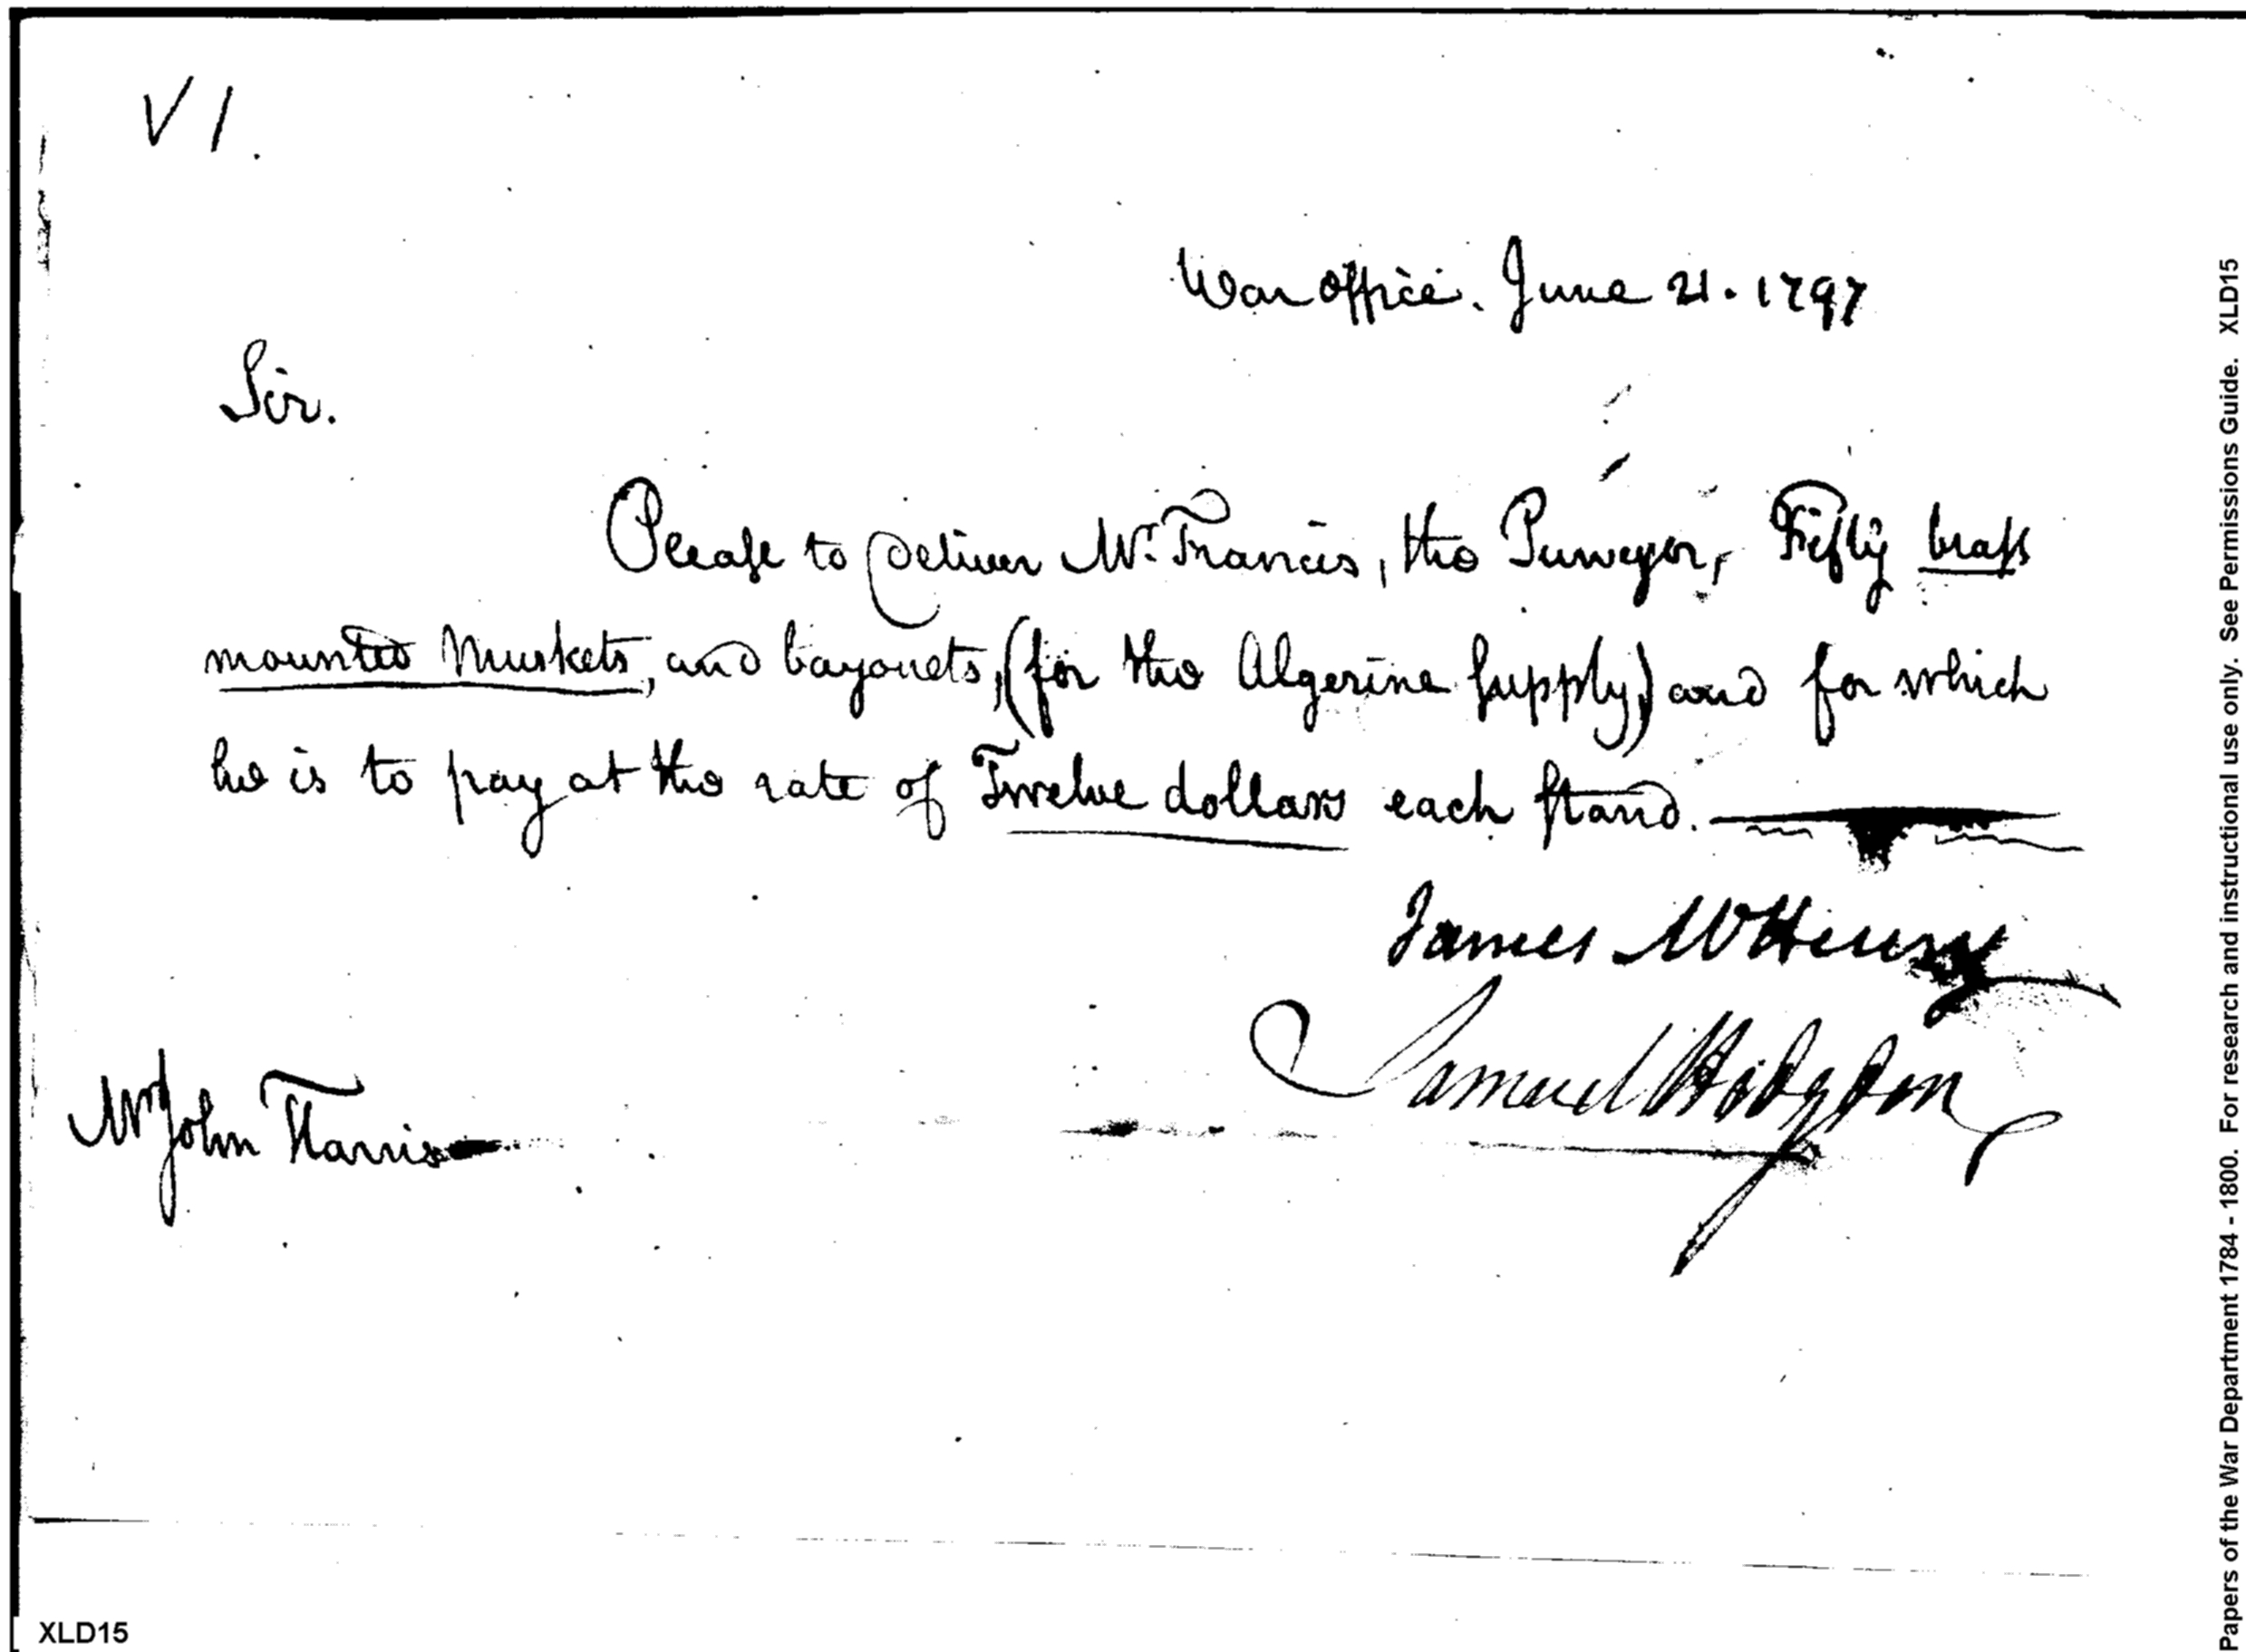 V 1.
War office. June 21. 1797
Sir.
Please to Deliver Mr. Francis, the Purveyor, Fifty brass
mounted Muskets, and bayonets, (for the Algerine supply) and for which
he is to pay at the rate of Twelve dollars each stand.
James McHenry
Samuel Hodgdon
Mr John Harris
XLD15
Papers of the War Department 1784 - 1800. For research and instructional use only. See Permissions Guide. XLD15